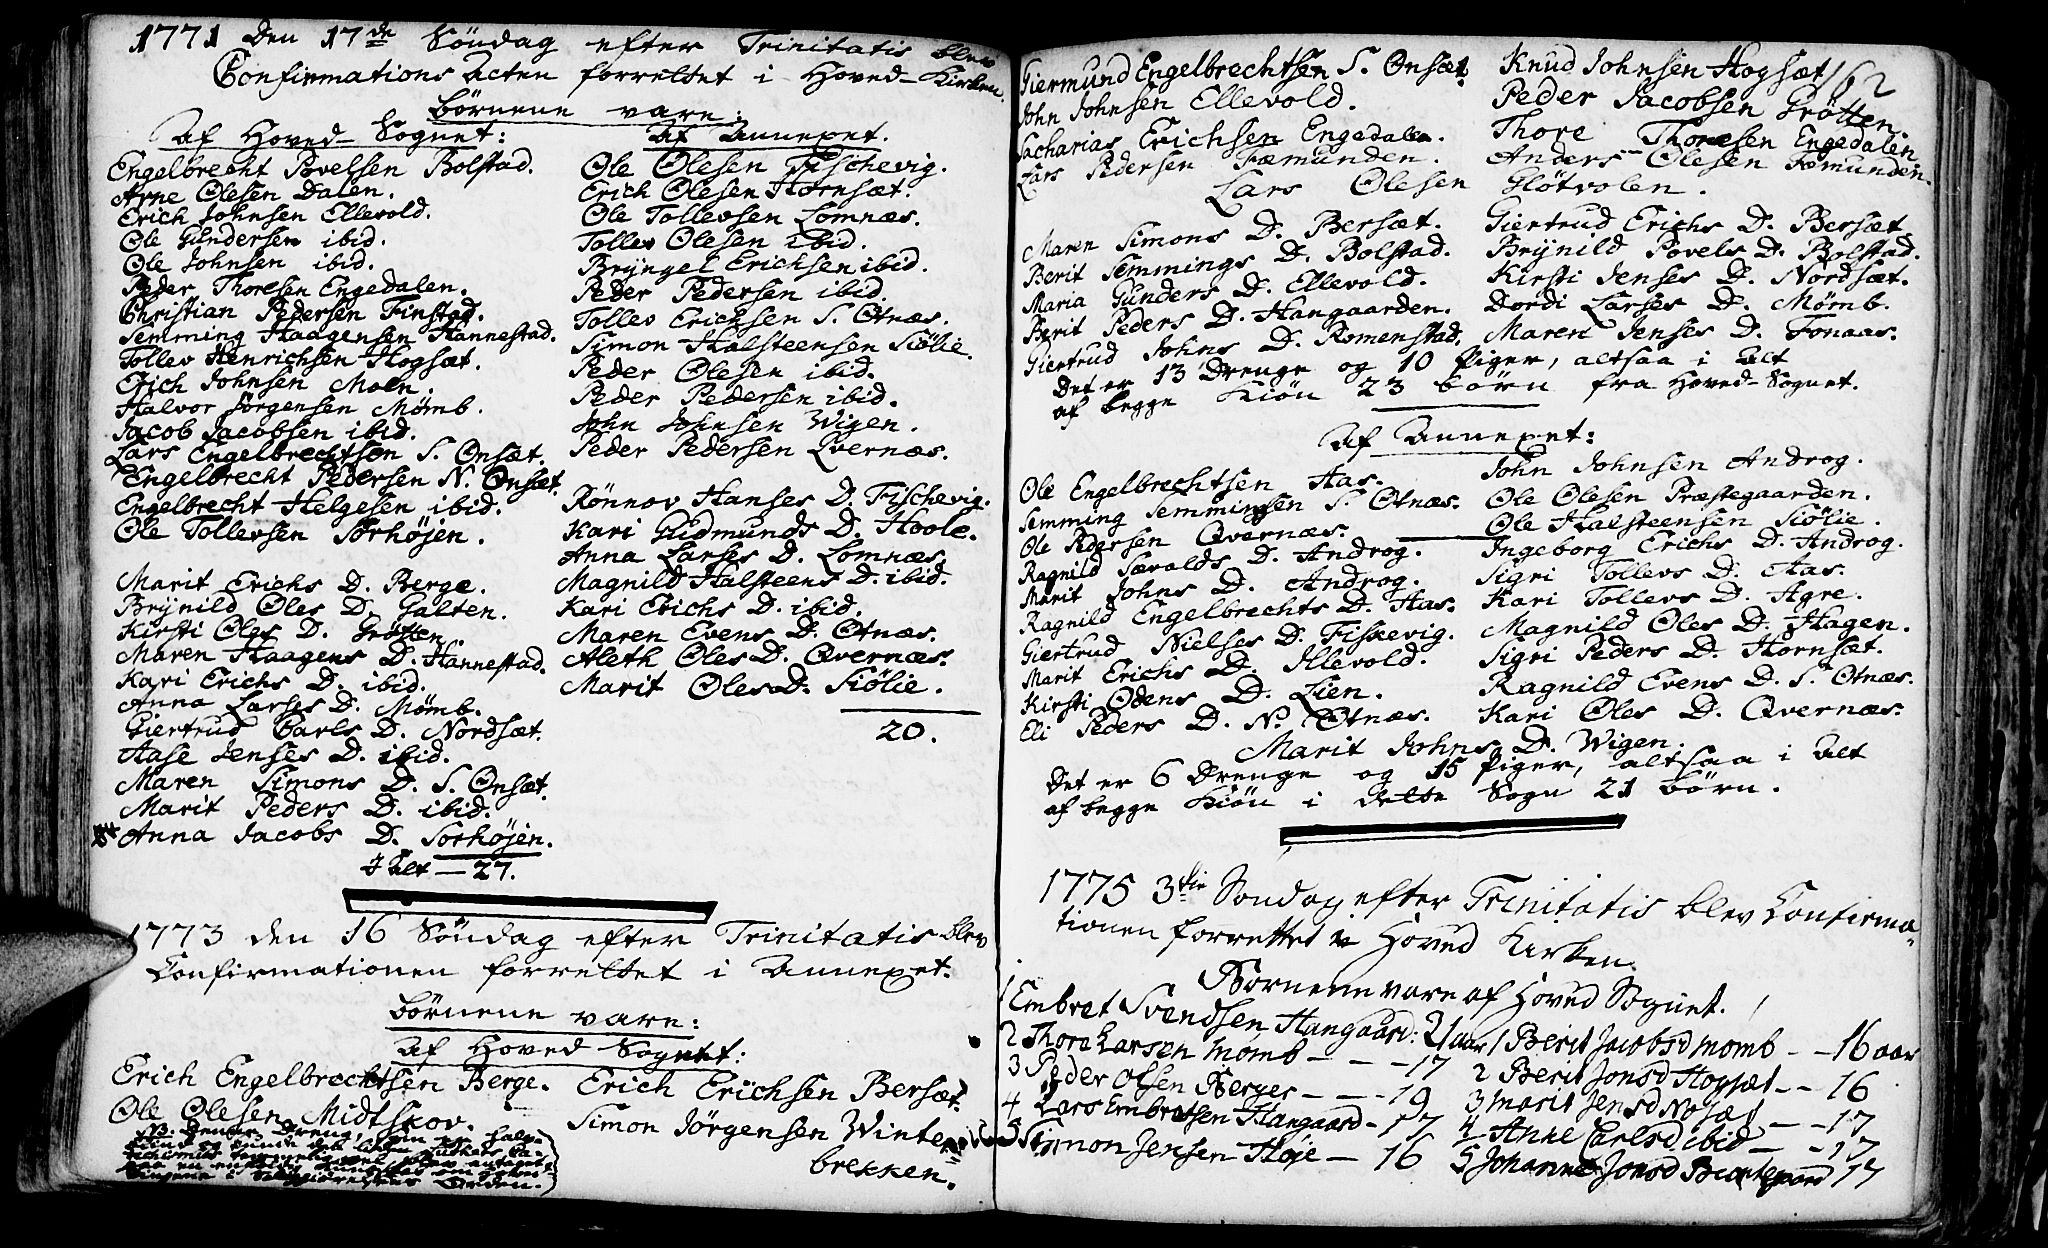 1771 Den 17de Söndag efter Trinitatis blev
Confirmations Acten forrettet i Hoved-Kirken.
Börnene vare:
Af Hoved-Sognet:
Engelbrecht Povelsen Bolstad.
Arne Olesen Dalen.
Erich Johnsen Ellevold.
Ole Gundersen ibid.
Ole Johnsen ibid.
Peder Thoresen Engedalen.
Christian Pedersen Finstad.
Semming Haagensen Hannestad.
Tollev Henrichsen Hogsæt.
Erich Johnsen Moen.
Halvor Jörgensen Mömb.
Jacob Jacobsen ibid.
Lars Engelbrechtsen S. Onsæt.
Engelbrecht Pedersen N. Onsæt.
Engelbrecht Helgesen ibid.
Ole Tollevsen Sorhöjen.
Marit Erichs D. Berge.
Brÿnild Oles D. Galten.
Kirsti Oles D. Grötten.
Maren Haagens D. Hannestad.
Kari Erichs D. ibid.
Anna Larses D. Mömb.
Giertrud Carls D. Nordsæt.
Aase Jenses D. ibid.
Maren Simons D. S. Onsæt.
Marit Peders D. ibid.
Anna Jacobs D. Sorhöjen.
I Alt — 27.
Af Annexet.
Ole Olesen Fischevig.
Erich Olesen Hornsæt.
Ole Tollevsen Lomnæs.
Tollev Olesen ibid.
Brÿngel Erichsen ibid.
Peder Pedersen ibid.
Tollev Erichsen S. Otnæs.
Simon Halsteensen Siölie.
Peder Olesen ibid.
Peder Pedersen ibid.
John Johnsen Wigen.
Peder Pedersen Qvernæs.
Rönnov Hanses D. Fischevig.
Kari Gudmunds D. Hoole.
Anna Larses D. Lomnæs.
Magnild Halsteens D. ibid.
Kari Erichs D. ibid.
Maren Evens D. Otnæs.
Aleth Oles D. Qvernæs.
Marit Oles D. Siölie.
20.
1773 den 16 Söndag efter Trinitatis blev
Confirmationen forrettet i Annexet.
Börnene vare:
Af Hoved Sognet:
Erich Engelbrechtsen Berge. Erich Erichsen Bersæt.
Ole Olesen Midtskov. Simon Jörgensen Winter=
brekken.
NB. Denne Dreng, som er halv=
i Saligiörelsens Orden.
162
Giermund Engelbrechtsen S. Onsæt. Knud Johnsen Hogsæt
John Johnsen Ellevold. Peder Jacobsen Grötten.
Sacharias Erichsen Engedalen. Thore Thoresen Engedalen
Lars Pedersen Fæmunden. Anders Olesen Fæmunden.
Lars Olesen Glötvolen.
Maren Simons D. Bersæt. Giertrud Erichs D. Bersæt
Berit Semmings D. Bolstad. Brÿnild Povels D. Bolstad.
Maria Gunders D. Ellevold. Kirsti Jenses D. Nordsæt.
Berit Peders D. Hangaarden. Dordi Larses D. Mömb.
Giertrud Johns D. Romenstad. Maren Jenses D. Fonaas.
Det er 13 Drenge og 10 Piger, altsaa i Alt
af begge Kiön 23 börn fra Hoved-Sognet.
Af Annexet:
Ole Engelbrechtsen Aas. John Johnsen Androg.
Semming Semmingsen S. Otnæs. Ole Olesen Præstegaarden.
Ole Pedersen Qvernæs. Ole Halsteensen Siölie.
Ragnild Sævalds D. Androg. Ingeborg Erichs D. Androg.
Marit Johns D. Androg. Sigri Tollevs D. Aas.
Ragnild Engelbrechts D. Aas. Kari Tollevs D. Agre.
Giertrud Nielses D. Fiskevig. Magnild Oles D. Hagen.
Marit Erichs D. Illevold. Sigri Peders D. Hornsæt.
Kirsti Odens D. Lien. Ragnild Evens D. S. Otnæs.
Eli Peders D. N. Otnæs. Kari Oles D. Qvernæs.
Marit Johns D. Wigen.
Det er 6 Drenge og 15 Piger, altsaa i Alt
af begge Kiön i dette Sogn 21 börn.
1775 3die Sondag efter Trinitatis blev Confirma=
tionen forrettet i Hoved Kirken.
Börnene vare af Hoved Sognet.
1 Embret Svendsen Hangaard: 21 aar 1 Berit Jacobsd Momb - - 16 aar
2 Thore Larsen Mömb - - - 17 2 Berit Jonsd Hogsæt - - 16
3 Peder Olsen Berger - - - 19 3 Marit Jensd Nosæt - - 17
4 Lars Embretsen Hangaard - 17 4 Anne Carlsd ibid - - 17
5 Simon Jensen Höje - 16 5 Johanne Jonsd 17